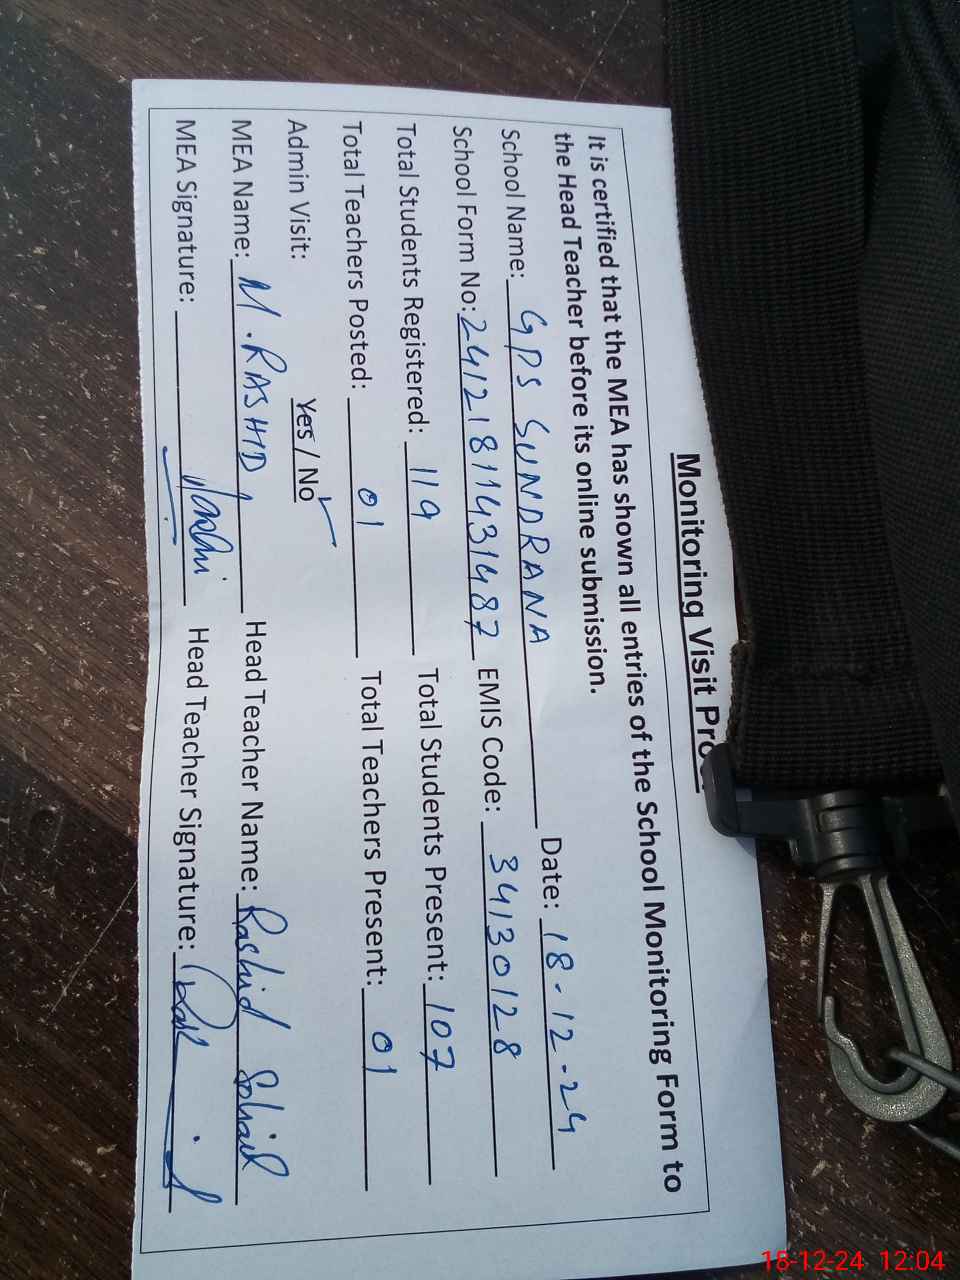 Monitoring Visit Pro
It is certified that the MEA has shown all entries of the School Monitoring Form to
the Head Teacher before its online submission.
School Name: GPS SUNDRANA Date: 18-12-24
School Form No: 24121811431487 EMIS Code: 34130128
Total Students Registered: 119 Total Students Present: 107
Total Teachers Posted: 01 Total Teachers Present: 01
Admin Visit: Yes / No
MEA Name: M. RASHID Head Teacher Name: Rashid Sohail
MEA Signature: Head Teacher Signature:
18-12-24 12:04